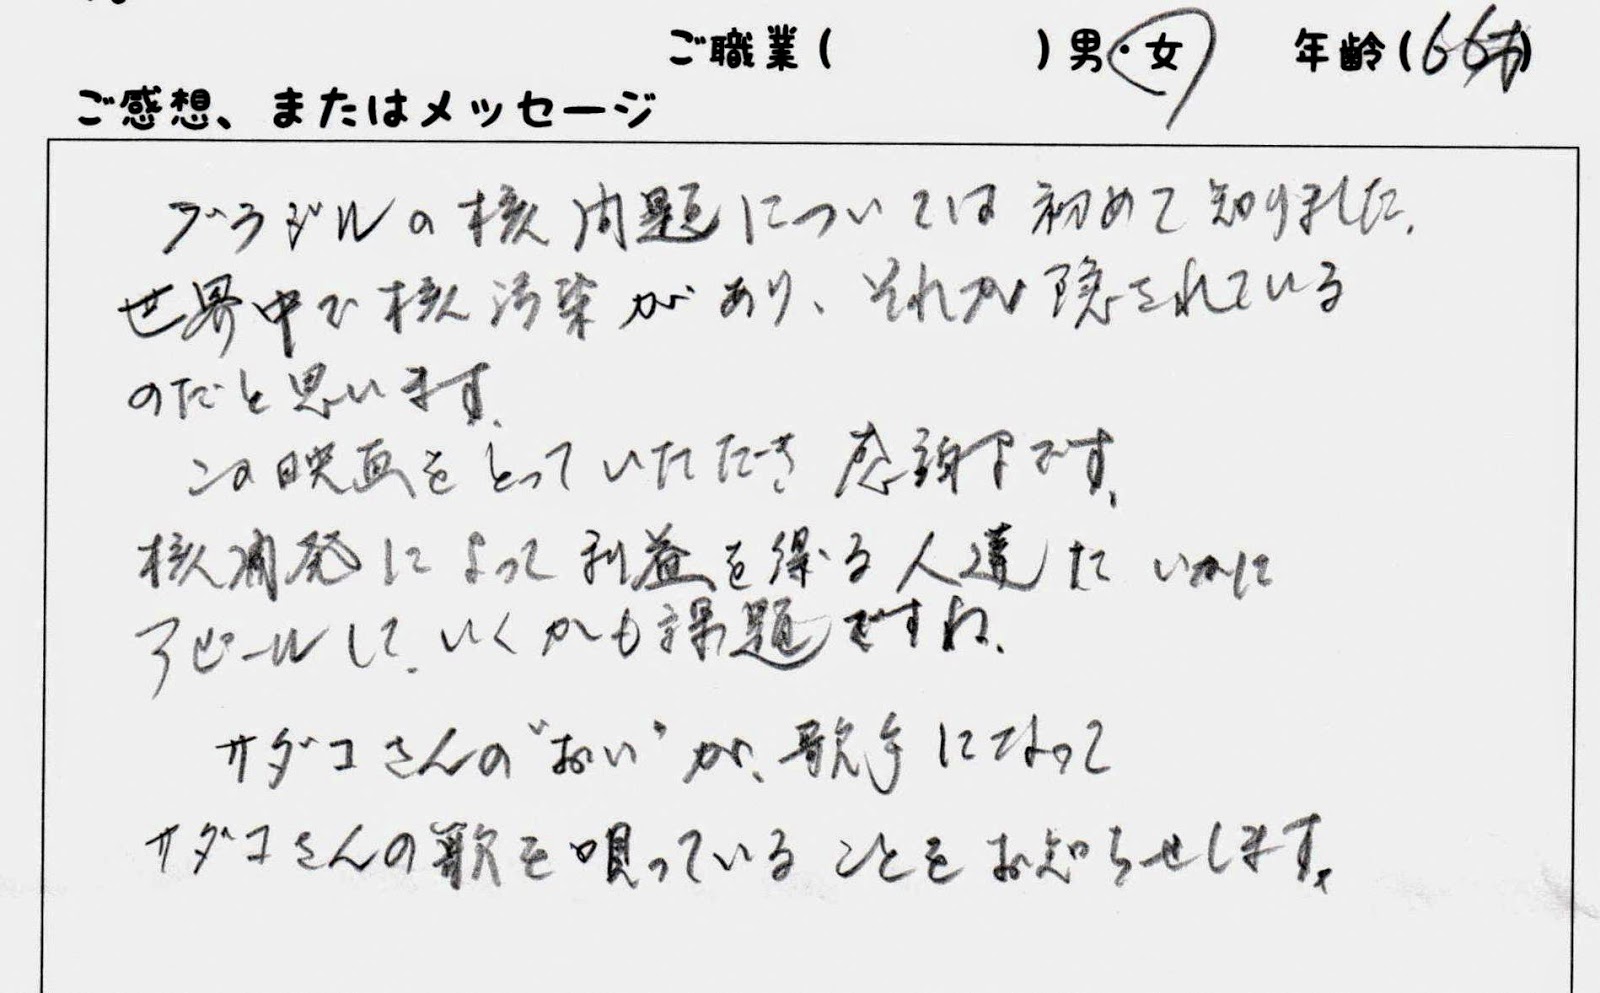 ご職業( )男・女 年齢(66才)
ご感想、またはメッセージ
ブラジルの核問題については初めて知りました。
世界中で核汚染があり、それが隠されている
のだと思います。
この映画をとっていただき感謝です。
核開発によって利益を得る人達にいかに
アピールして、いくかも課題ですね。
サダコさんの"おい"が、歌手になって
サダコさんの歌を唄っていることをお知らせします。